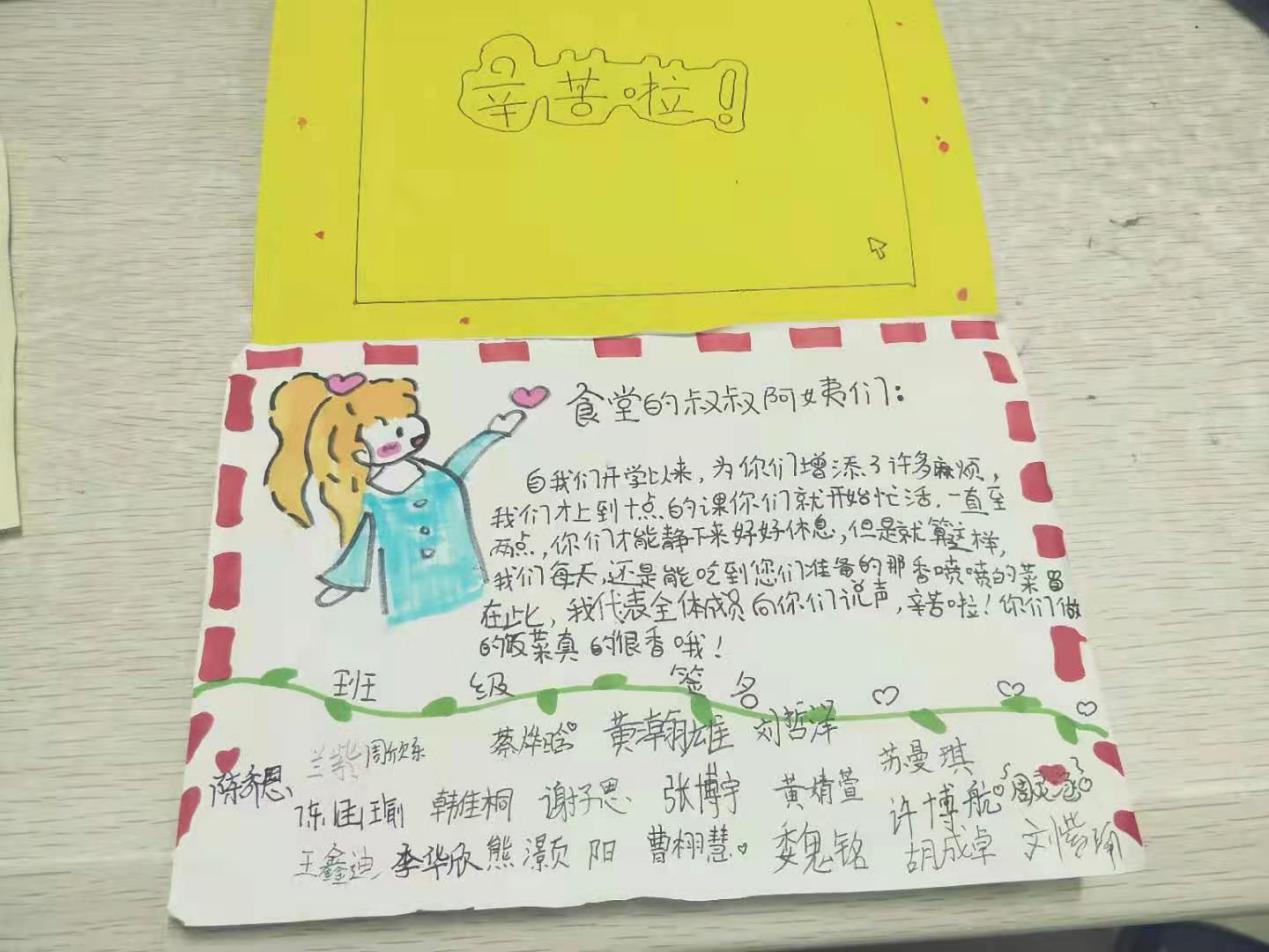 辛苦啦!
食堂的叔叔阿姨们:
自我们开学以来,为你们增添了许多麻烦,
我们才上到十点的课你们就开始忙活,一直至
两点,你们才能静下来好好休息,但是就算这样,
我们每天,还是能吃到您们准备的那香喷喷的菜
在此,我代表全体成员向你们说声,辛苦啦!你们做
的饭菜真的很香哦!
班 级 签 名
兰紫 周欣乐 蔡烨晗 黄瀚雄 刘哲泽 苏曼琪
陈乔恩 陈国瑜 韩佳桐 谢抒思 张博宇 黄婧萱 许博航
王鑫迪 李华欣 熊灏 阳 曹栩慧 魏铭 胡成卓